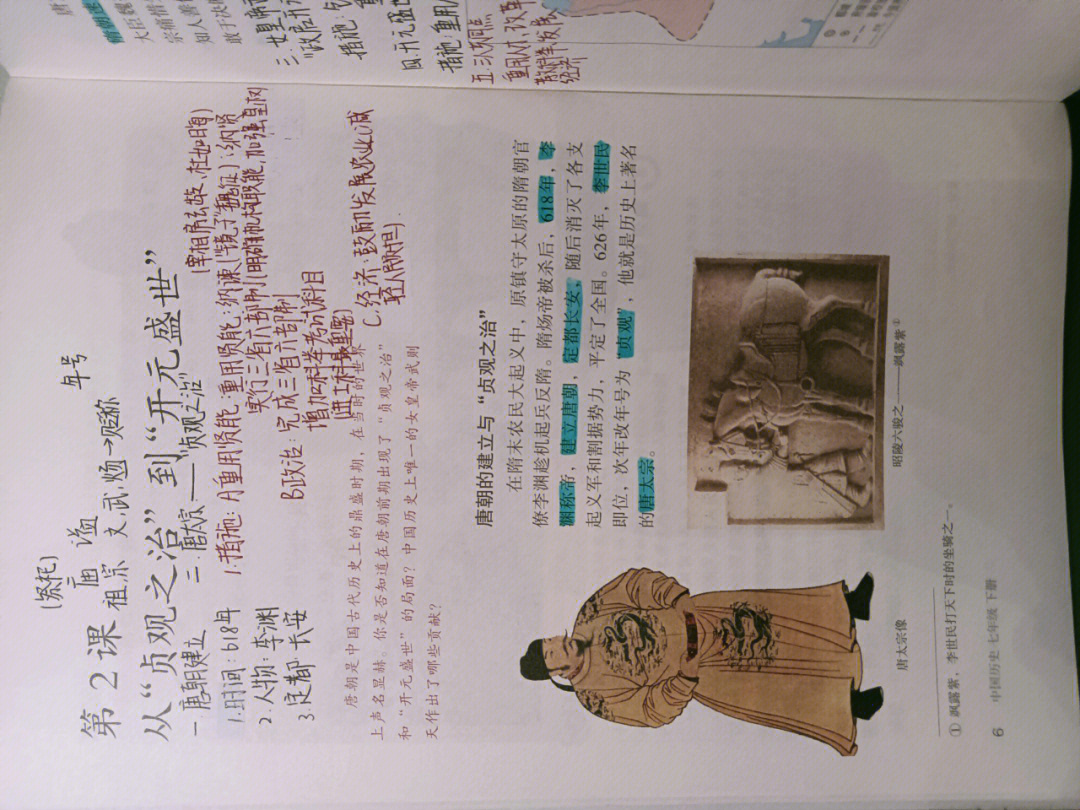 第2课
(祭祀)
庙 谥 年号
祖宗 文、武、炀→贬称
从“贞观之治”到“开元盛世”
一.唐朝建立
1.时间:618年
2.人物:李渊
3.定都 长安
二.唐太宗——“贞观之治”
1.措施:A重用贤能:重用贤能;纳谏(“镜子”魏征);纳贤
(宰相房玄龄、杜如晦)
实行三省六部制(明确机构职能,加强皇权
B政治:完成三省六部制
增加科举考试科目
(进士科最重要)
C.经济:鼓励发展农业,减
轻人民负担).
唐朝是中国古代历史上的鼎盛时期,在当时的世界
上声名显赫。你是否知道在唐朝前期出现了“贞观之治”
和“开元盛世”的局面?中国历史上唯一的女皇帝武则
天作出了哪些贡献?
唐朝的建立与“贞观之治”
在隋末农民大起义中,原镇守太原的隋朝官
僚李渊趁机起兵反隋。隋炀帝被杀后,618年,李
渊称帝,建立唐朝,定都长安,随后消灭了各支
起义军和割据势力,平定了全国。626年,李世民
即位,次年改年号为“贞观”,他就是历史上著名
的唐太宗。
唐太宗像
昭陵六骏之一——飒露紫①
① 飒露紫,李世民打天下时的坐骑之一。
6 中国历史 七年级 下册
三.女皇帝
四.开元盛世
措施:重用
五.三人不同点
重用人才,改革
经济